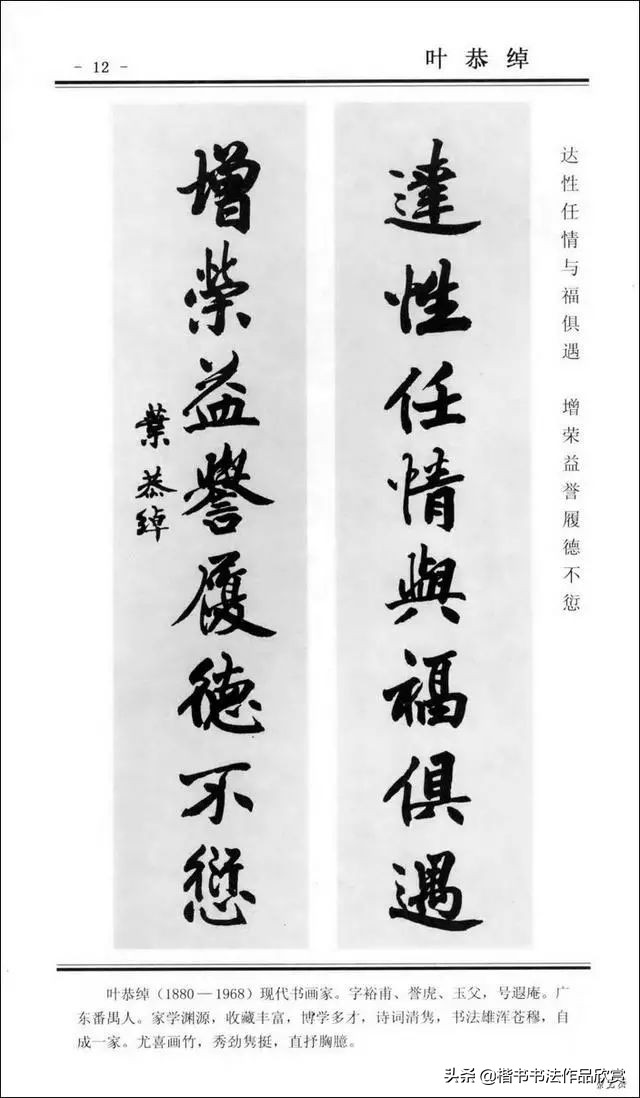 - 12 -
叶恭绰
達性任情與福俱遇
增榮益譽履德不愆
葉恭綽
达性任情与福俱遇 增荣益誉履德不愆
叶恭绰（1880—1968）现代书画家。字裕甫、誉虎、玉父，号遐庵。广
东番禺人。家学渊源，收藏丰富，博学多才，诗词清隽，书法雄浑苍穆，自
成一家。尤喜画竹，秀劲隽挺，直抒胸臆。
头条 @楷书书法作品欣赏